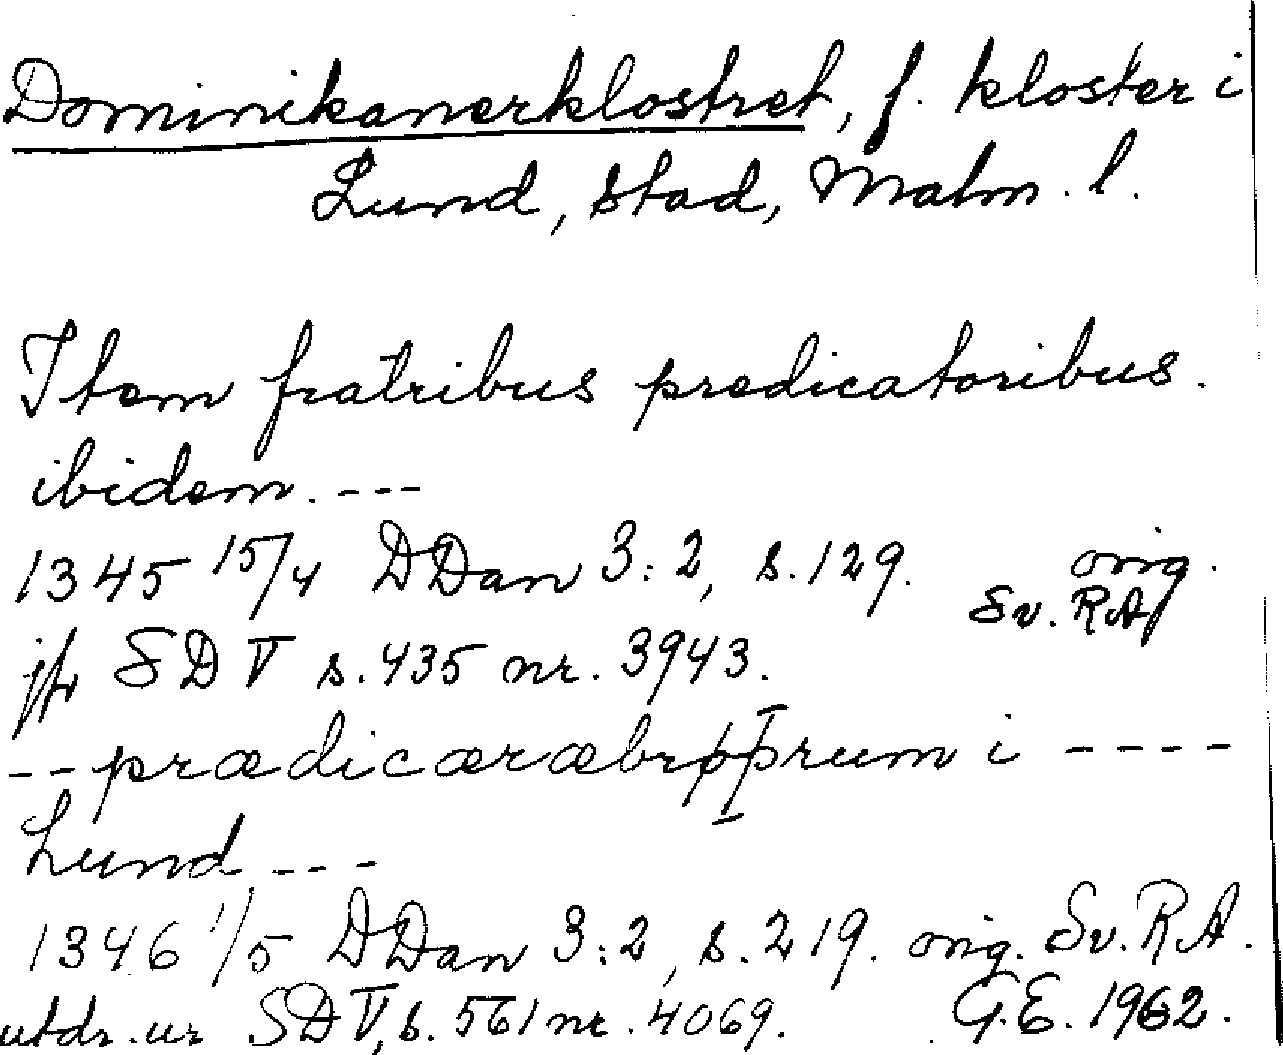 Dominikanerklostret, f. kloster i
Lund, stad, Malm. l.
Item fratribus predicatoribus.
ibidem. ---
1345 15/4 DDan 3:2, s. 129. orig.
Sv. RA
jfr SD V s. 435 nr. 3943.
-- prædicæræbrøþrum i ----
Lund ---
1346 1/5 DDan 3:2, s. 219. orig. Sv. RA.
utdr. ur SD V, s. 561 nr. 4069. G.E. 1962.